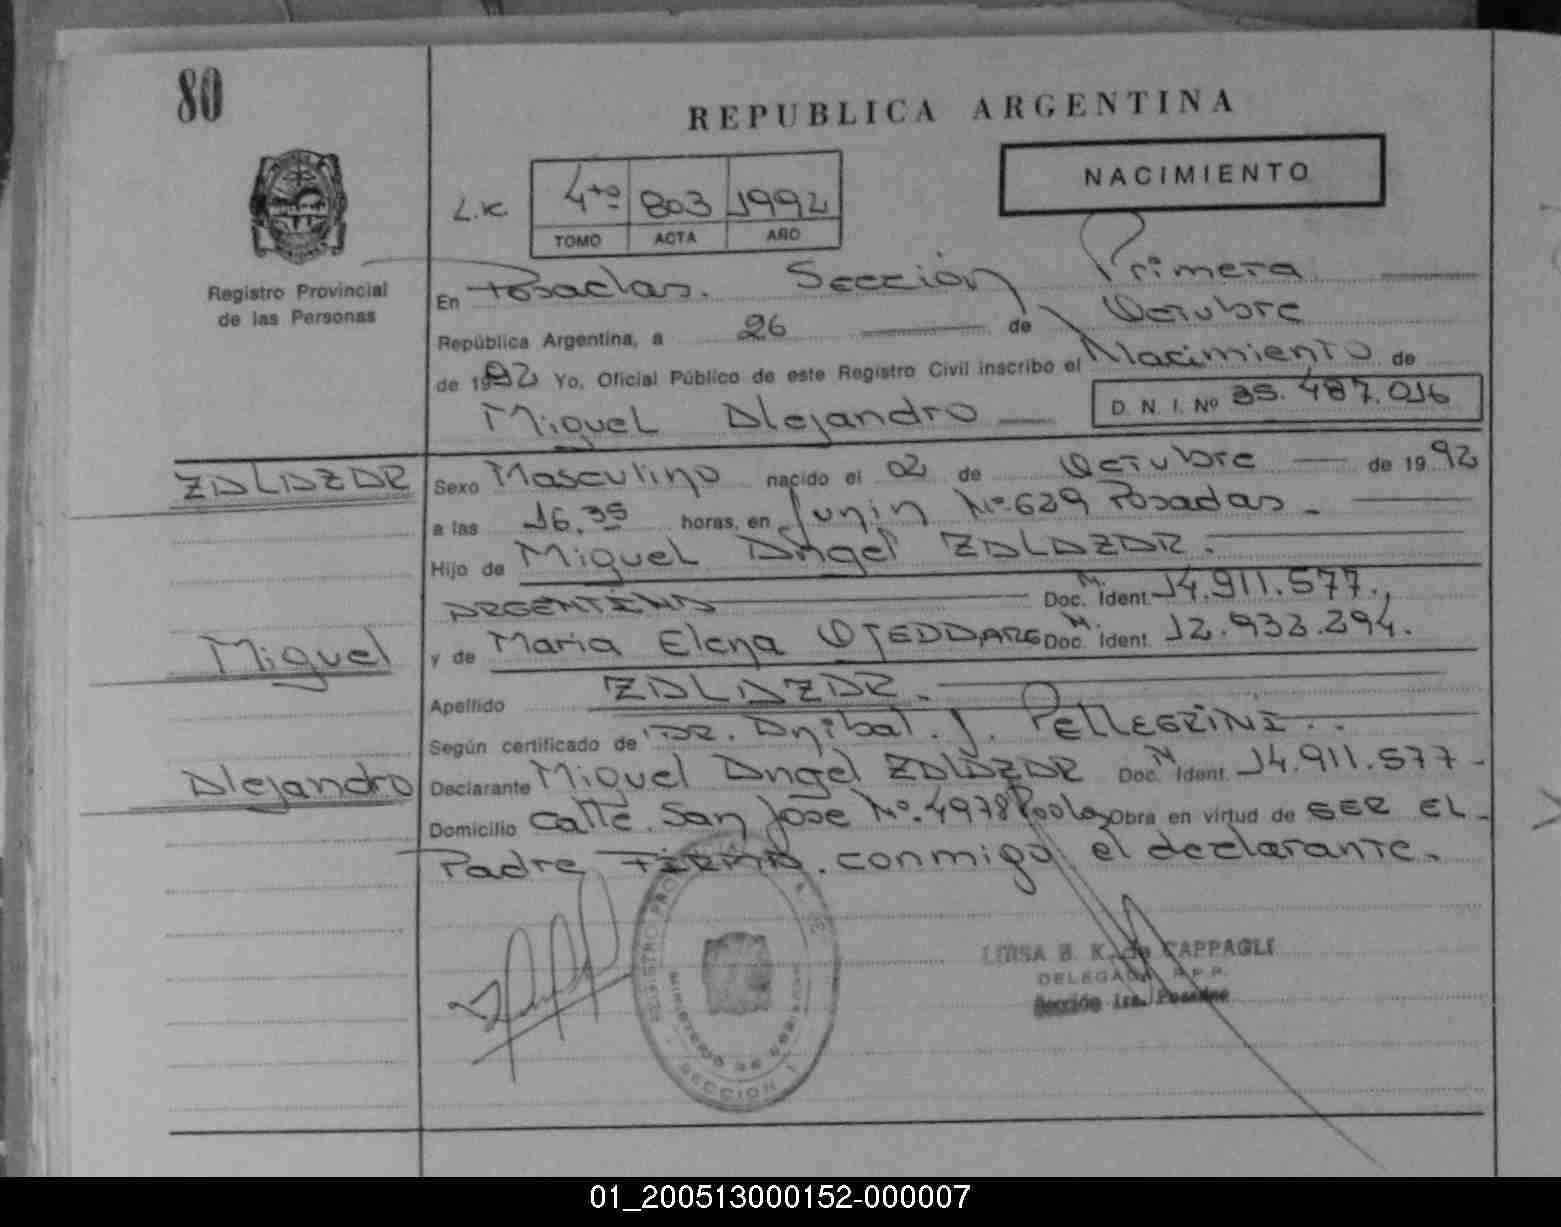 80
REPUBLICA ARGENTINA
NACIMIENTO
L.K. 4to 803 1992
TOMO ACTA AÑO
Registro Provincial
de las Personas
En Posadas. Sección Primera
República Argentina, a 26 de Octubre
de 1992 Yo, Oficial Público de este Registro Civil inscribo el Nacimiento de
Miguel Alejandro D. N. I. Nº 35.487.016
ZALAZAR
Sexo Masculino nacido el 02 de Octubre de 1992
a las 16,35 horas, en Junin Nº 639 Posadas.
Hijo de Miguel Angel ZALAZAR.
ARGENTINA Doc. M. Ident. 14.911.577.,
Miguel
y de Maria Elena OJEDA, ARG Doc. M. Ident. 12.933.294.
Apellido ZALAZAR.
Según certificado de DR. Anibal. J. PELLEGRINI..
Alejandro
Declarante Miguel Angel ZALAZAR Doc. M Ident. 14.911.577-
Domicilio Calle. San Jose Nº. 4978 Obra en virtud de SER EL
Padre FIRMA. conmigo el declarante.
REGISTRO
MINISTERIO DE GOBIERNO
SECCION 1
LUISA B. K. de CAPPAGLI
DELEGADA R.P.P.
Sección 1ra. Posadas
01_200513000152-000007